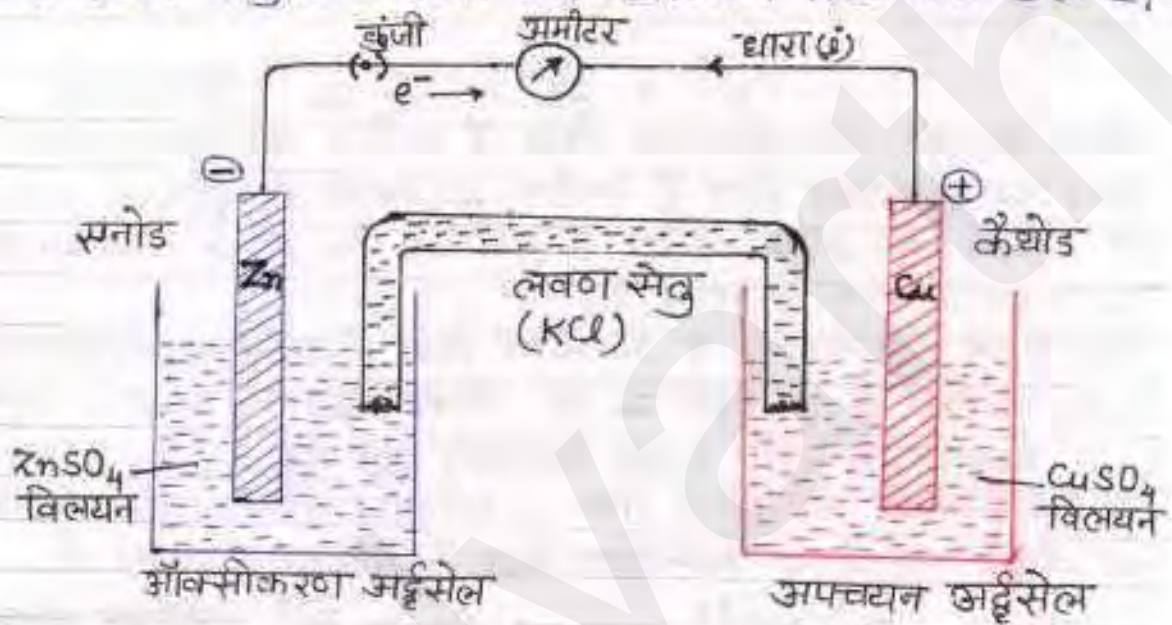 कुंजी
(•)
अमीटर
धारा (i)
e⁻ →
−
+
एनोड
कैथोड
Zn
Cu
लवण सेतु
(KCl)
ZnSO₄
विलयन
CuSO₄
विलयन
ऑक्सीकरण अर्द्धसेल
अपचयन अर्द्धसेल